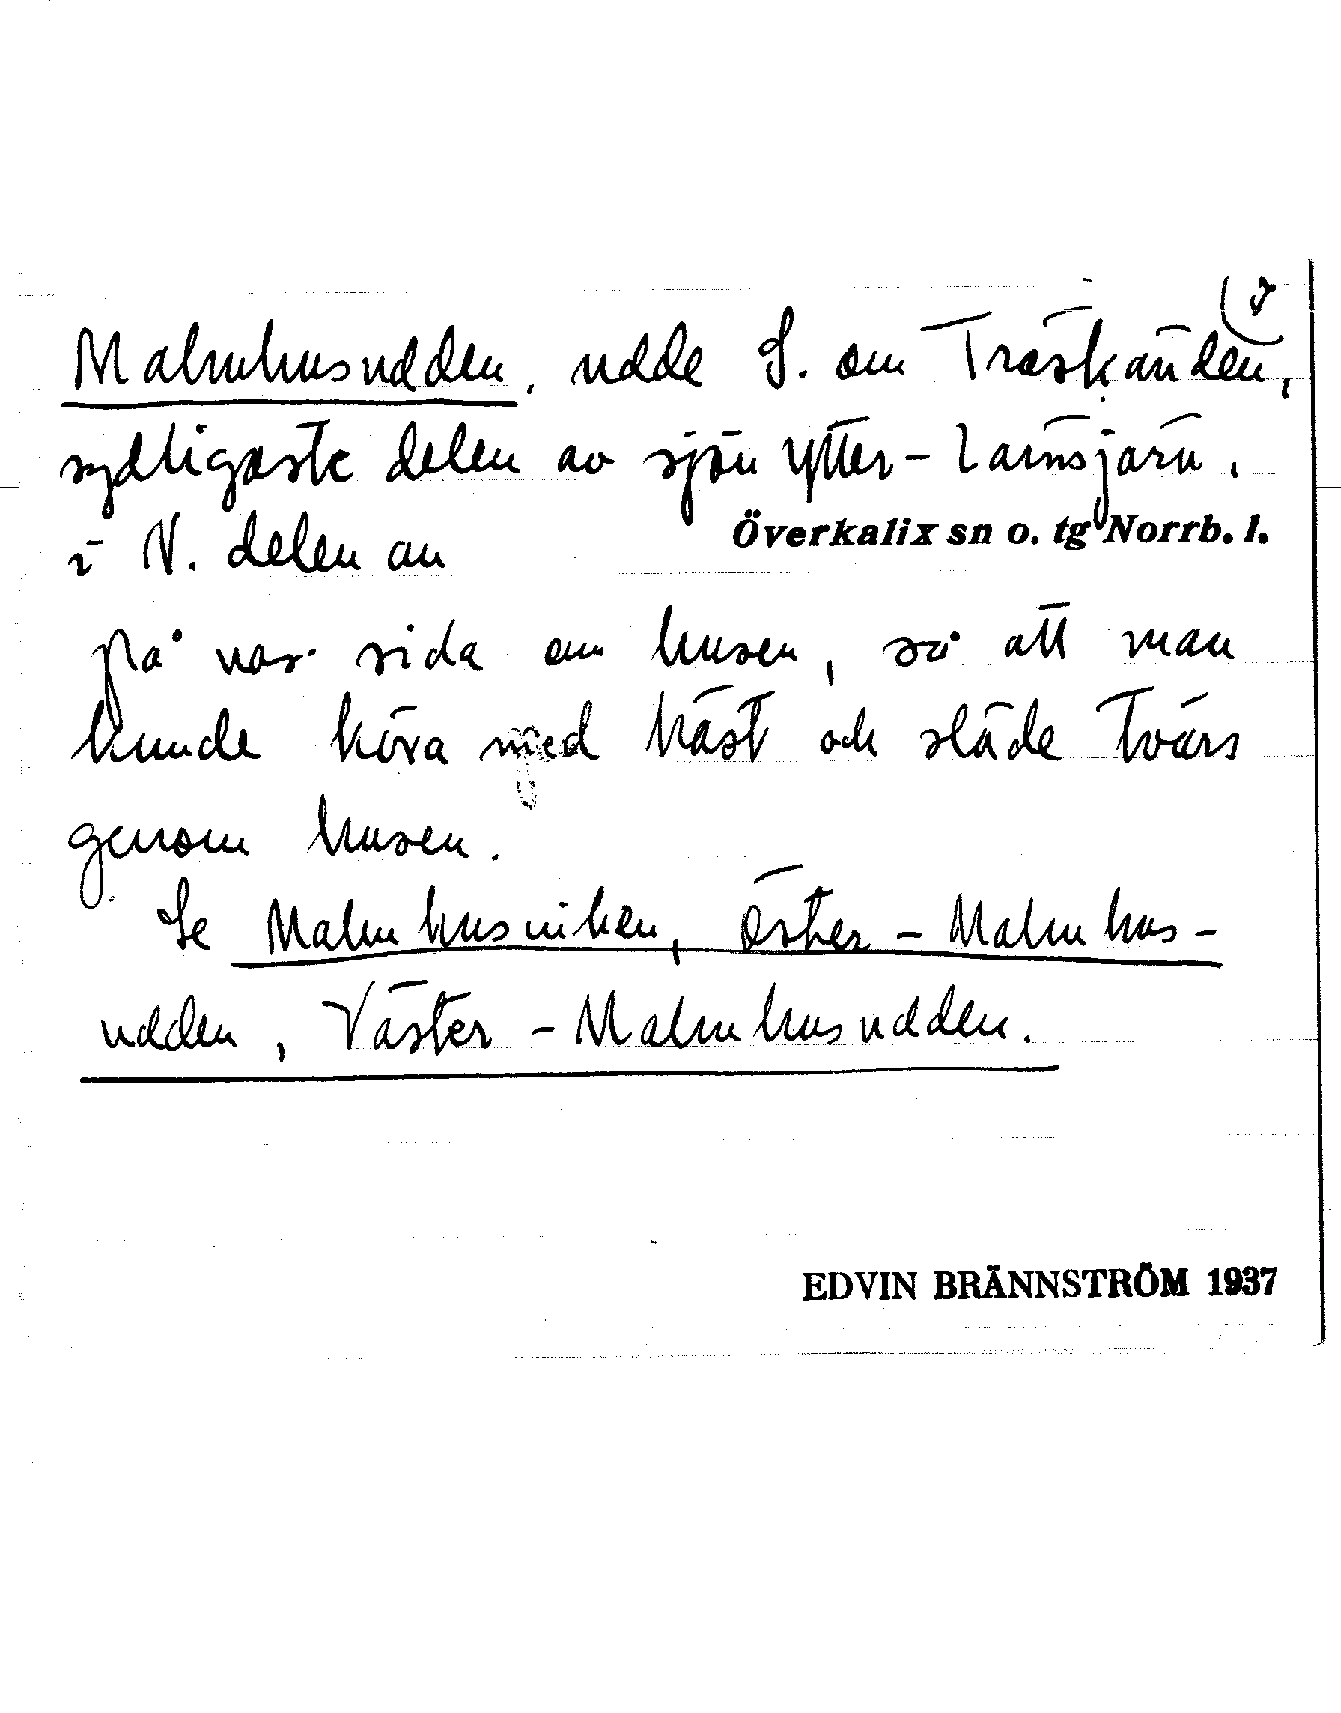 Malmhusudden, udde S. om Träskänden,
sydligaste delen av sjön Ytter-Lansjärv,
i N. delen av
Överkalix sn o. tg Norrb. l.
på var sida om husen, så att man
kunde köra med häst och släde tvärs
genom husen.
Se Malmhusviken, Öster-Malmhus-
udden, Väster-Malmhusudden.
EDVIN BRÄNNSTRÖM 1937